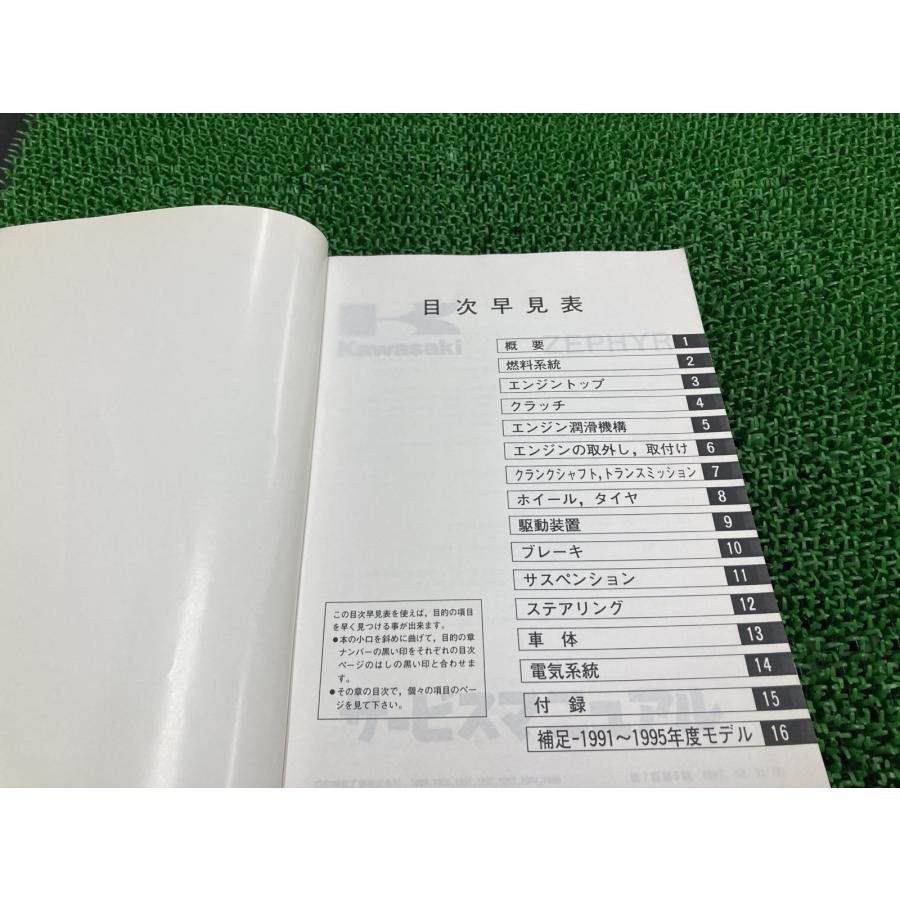 目次早見表
Kawasaki
ZEPHYR
概 要 1
燃料系統 2
エンジントップ 3
クラッチ 4
エンジン潤滑機構 5
エンジンの取外し，取付け 6
クランクシャフト，トランスミッション 7
ホイール，タイヤ 8
駆動装置 9
ブレーキ 10
サスペンション 11
ステアリング 12
車 体 13
電気系統 14
付 録 15
補足-1991～1995年度モデル 16
この目次早見表を使えば，目的の項目
を早く見つける事が出来ます。
●本の小口を斜めに曲げて，目的の章
ナンバーの黒い印をそれぞれの目次
ページのはしの黒い印と合わせま
す。
●その章の目次で，個々の項目のペー
ジを見て下さい。
サービスマニュアル